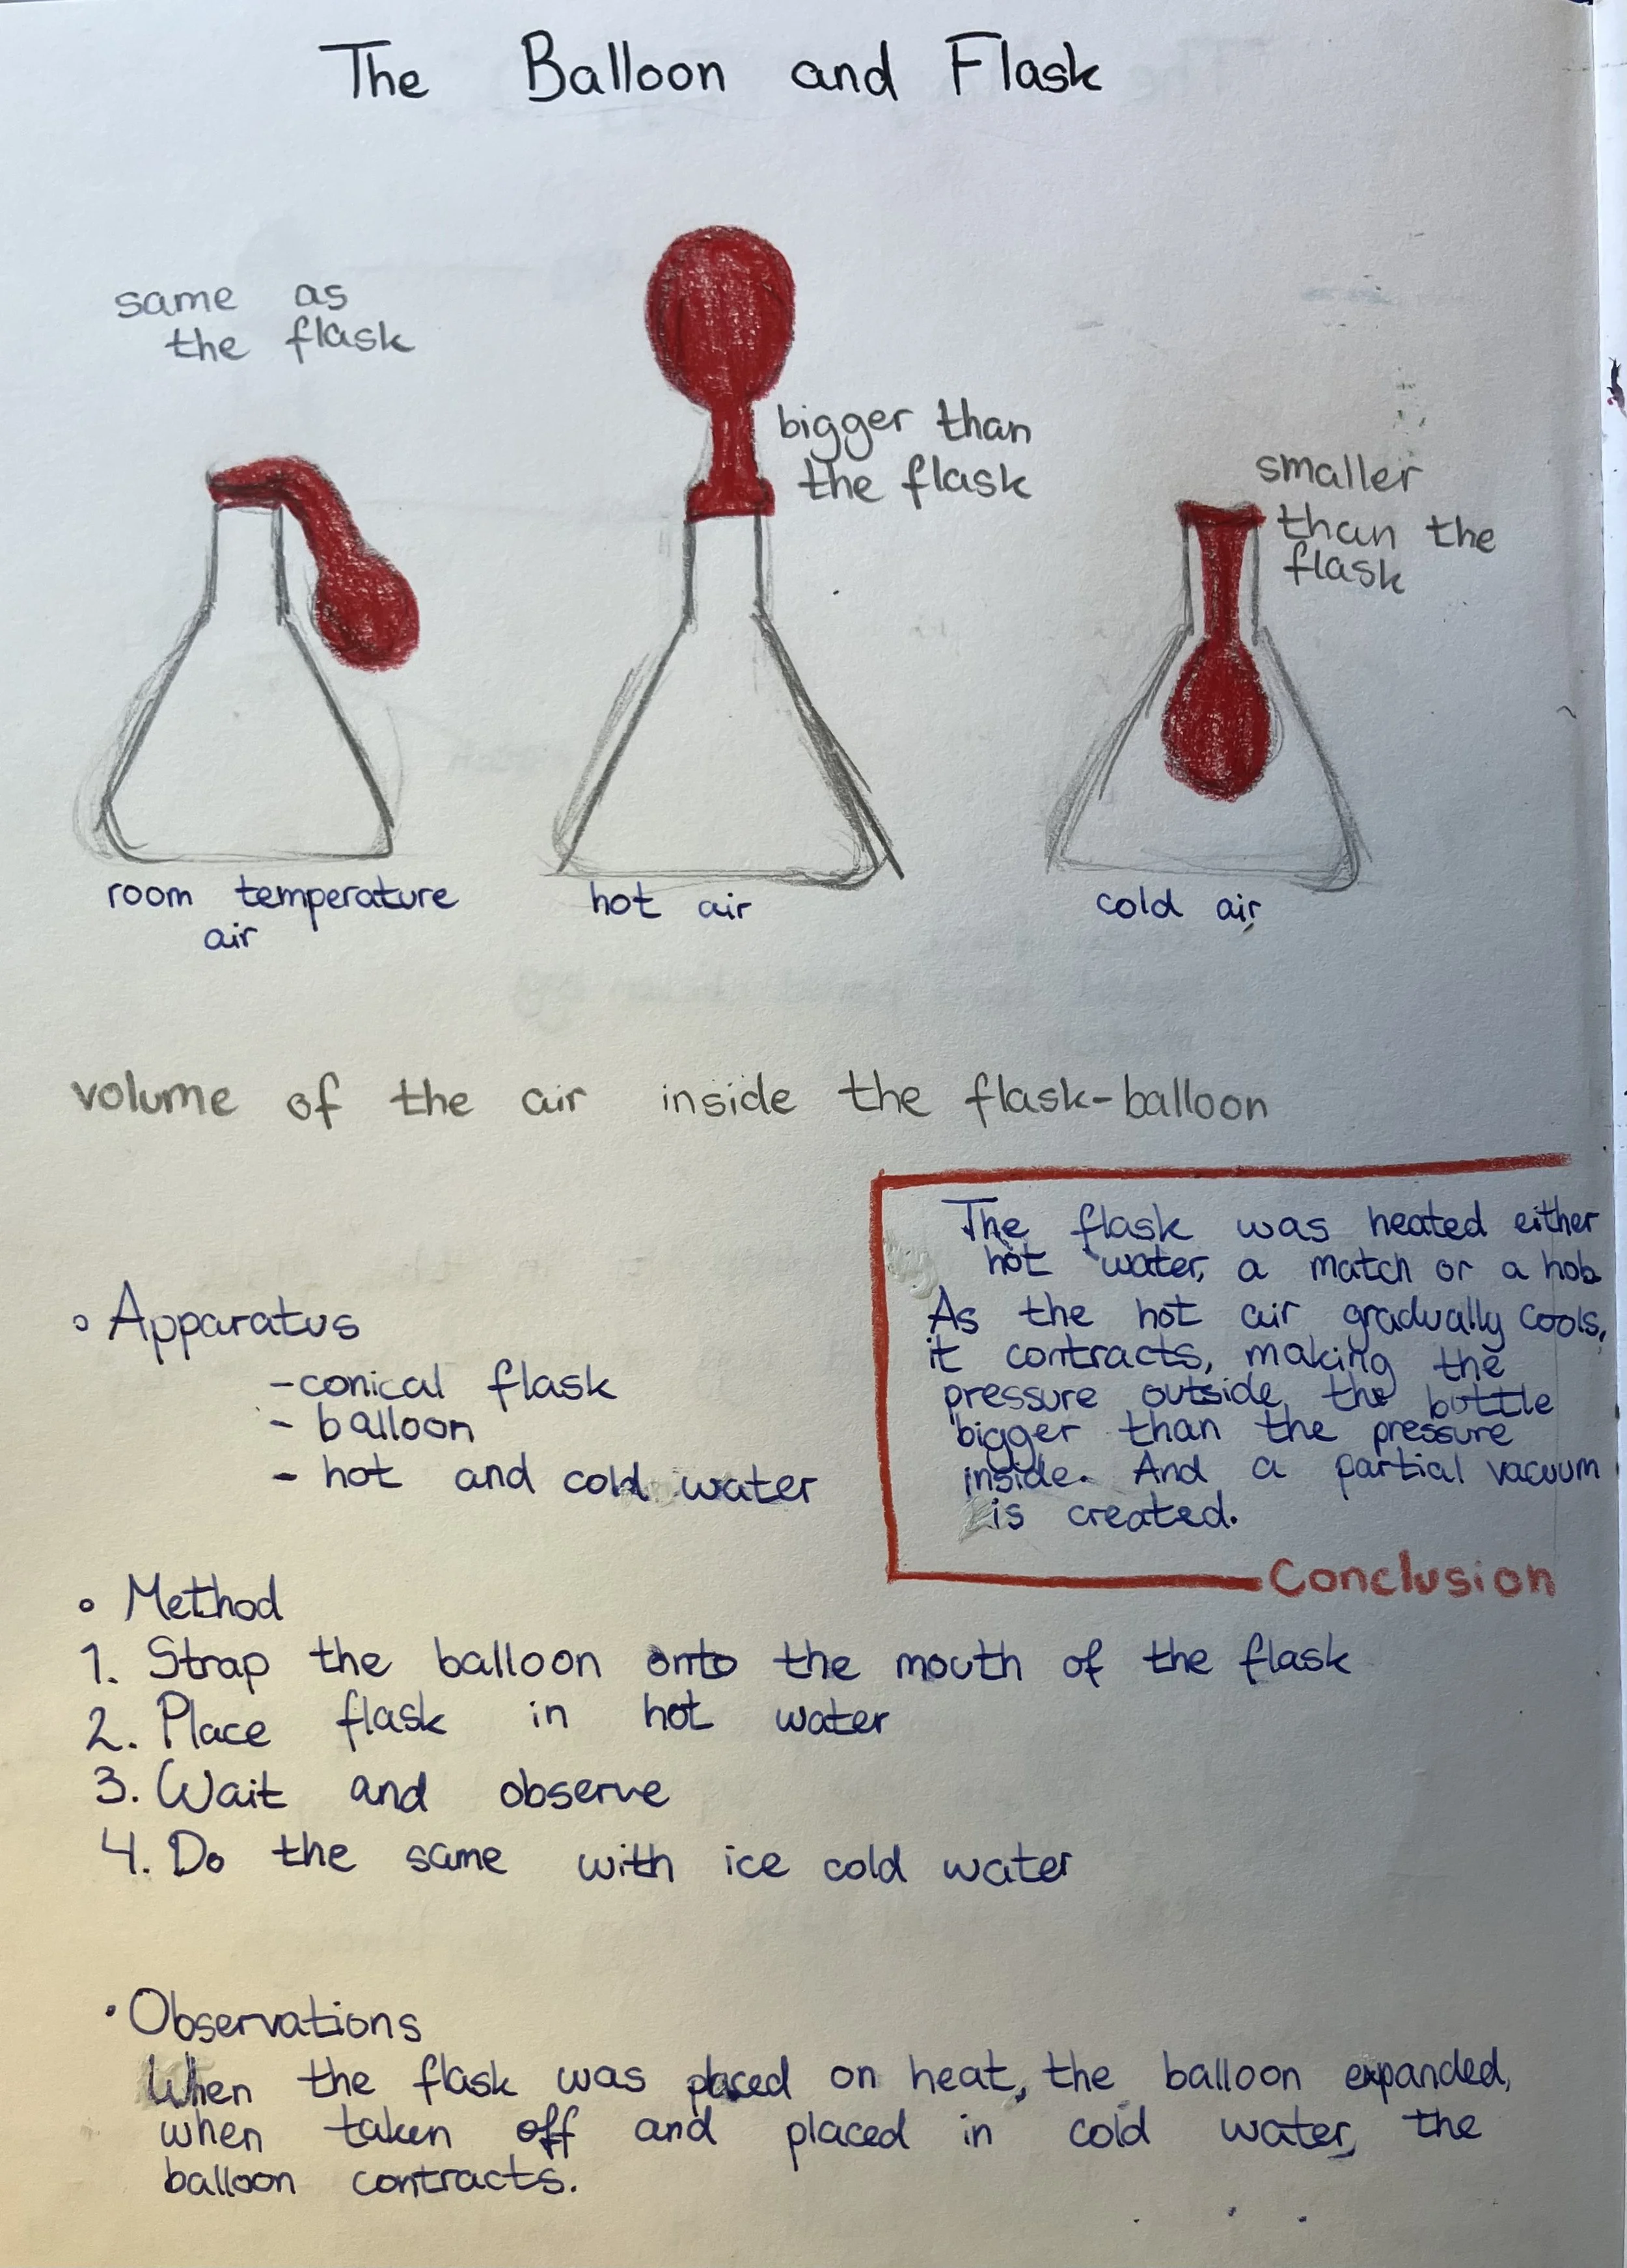 The Balloon and Flask
same as
the flask
bigger than
the flask
smaller
than the
flask
room temperature
air
hot air
cold air
volume of the air inside the flask-balloon
The flask was heated either
hot water, a match or a hob
As the hot air gradually cools,
it contracts, making the
pressure outside the bottle
bigger than the pressure
inside. And a partial vacuum
is created.
Conclusion
Apparatus
- conical flask
- balloon
- hot and cold water
Method
1. Strap the balloon onto the mouth of the flask
2. Place flask in hot water
3. Wait and observe
4. Do the same with ice cold water
Observations
When the flask was placed on heat, the balloon expanded,
when taken off and placed in cold water, the
balloon contracts.